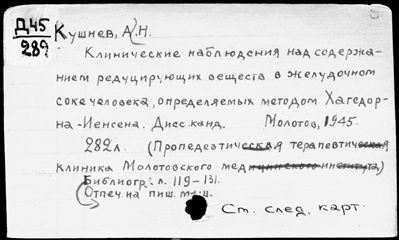 Д45
289
Кушнев, А.Н.
Клинические наблюдения над содержа-
нием редуцирующих веществ в желудочном
соке человека, определяемых методом Хагедор-
на-Иенсена. Дисс. канд. Молотов, 1945.
282 л. (Пропедевтическая терапевтическая
клиника Молотовского медицинского института)
Библиогр: л. 119-131.
Отпеч. на пиш. маш.
См. след. карт.